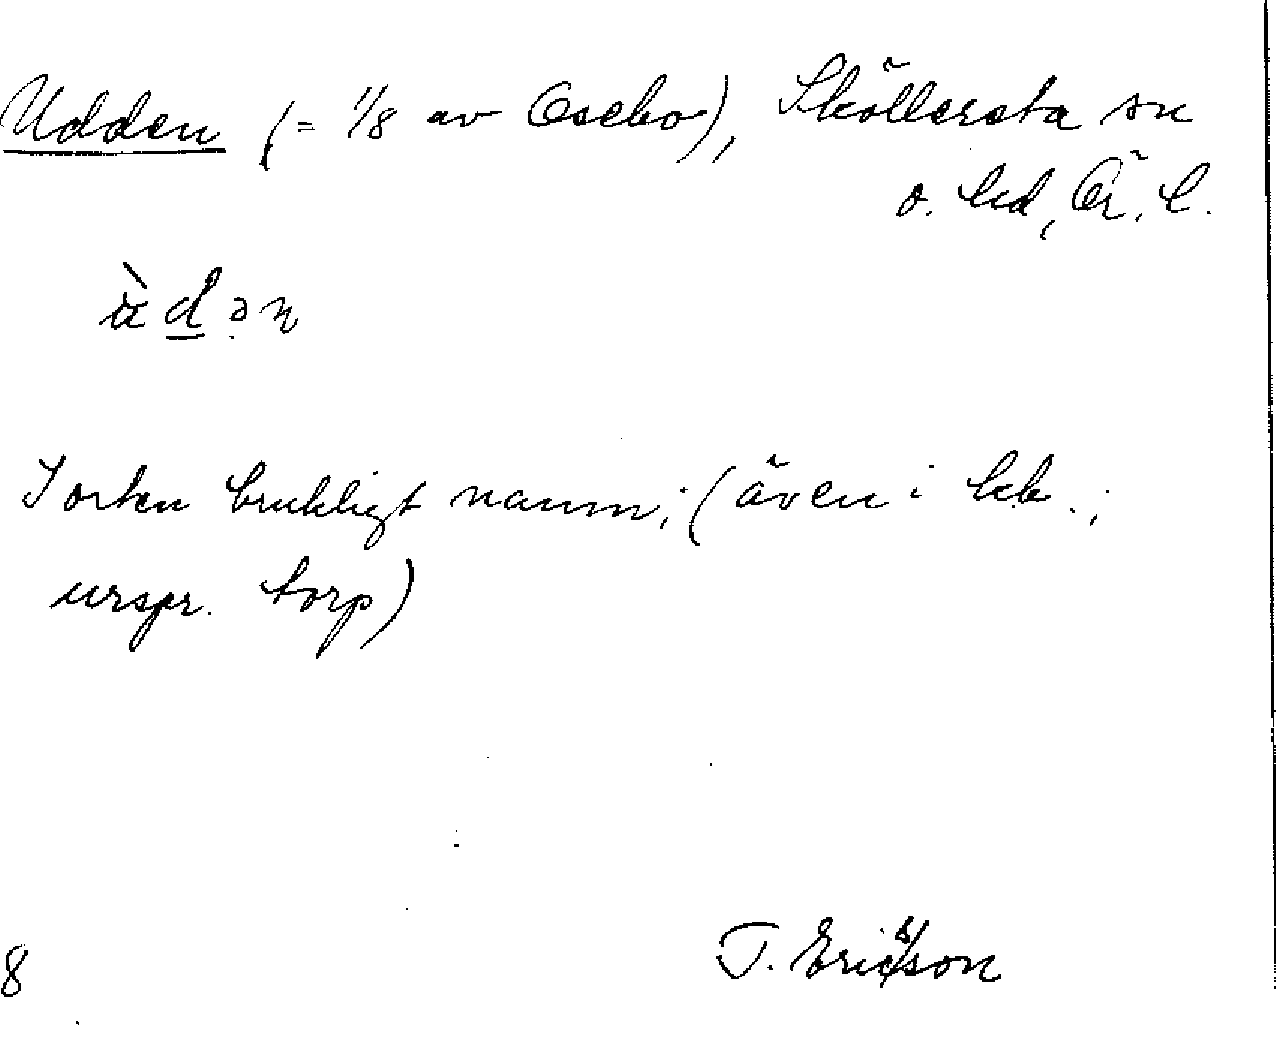 Udden (= 1/8 av Osebo), Sköllersta sn
o. hd, Ör. l.
ùdən
I orten brukligt namn; (även i kb.;
urspr. torp)
T. Ericsson
8